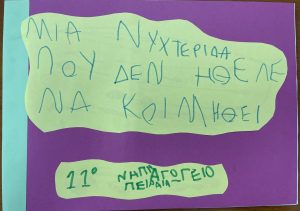 ΜΙΑ ΝΥΧΤΕΡΙΔΑ
ΠΟΥ ΔΕΝ ΗΘΕΛΕ
ΝΑ ΚΟΙΜΗΘΕΙ
11° ΝΗΠΙΑΓΩΓΕΙΟ
ΠΕΙΡΑΙΑ